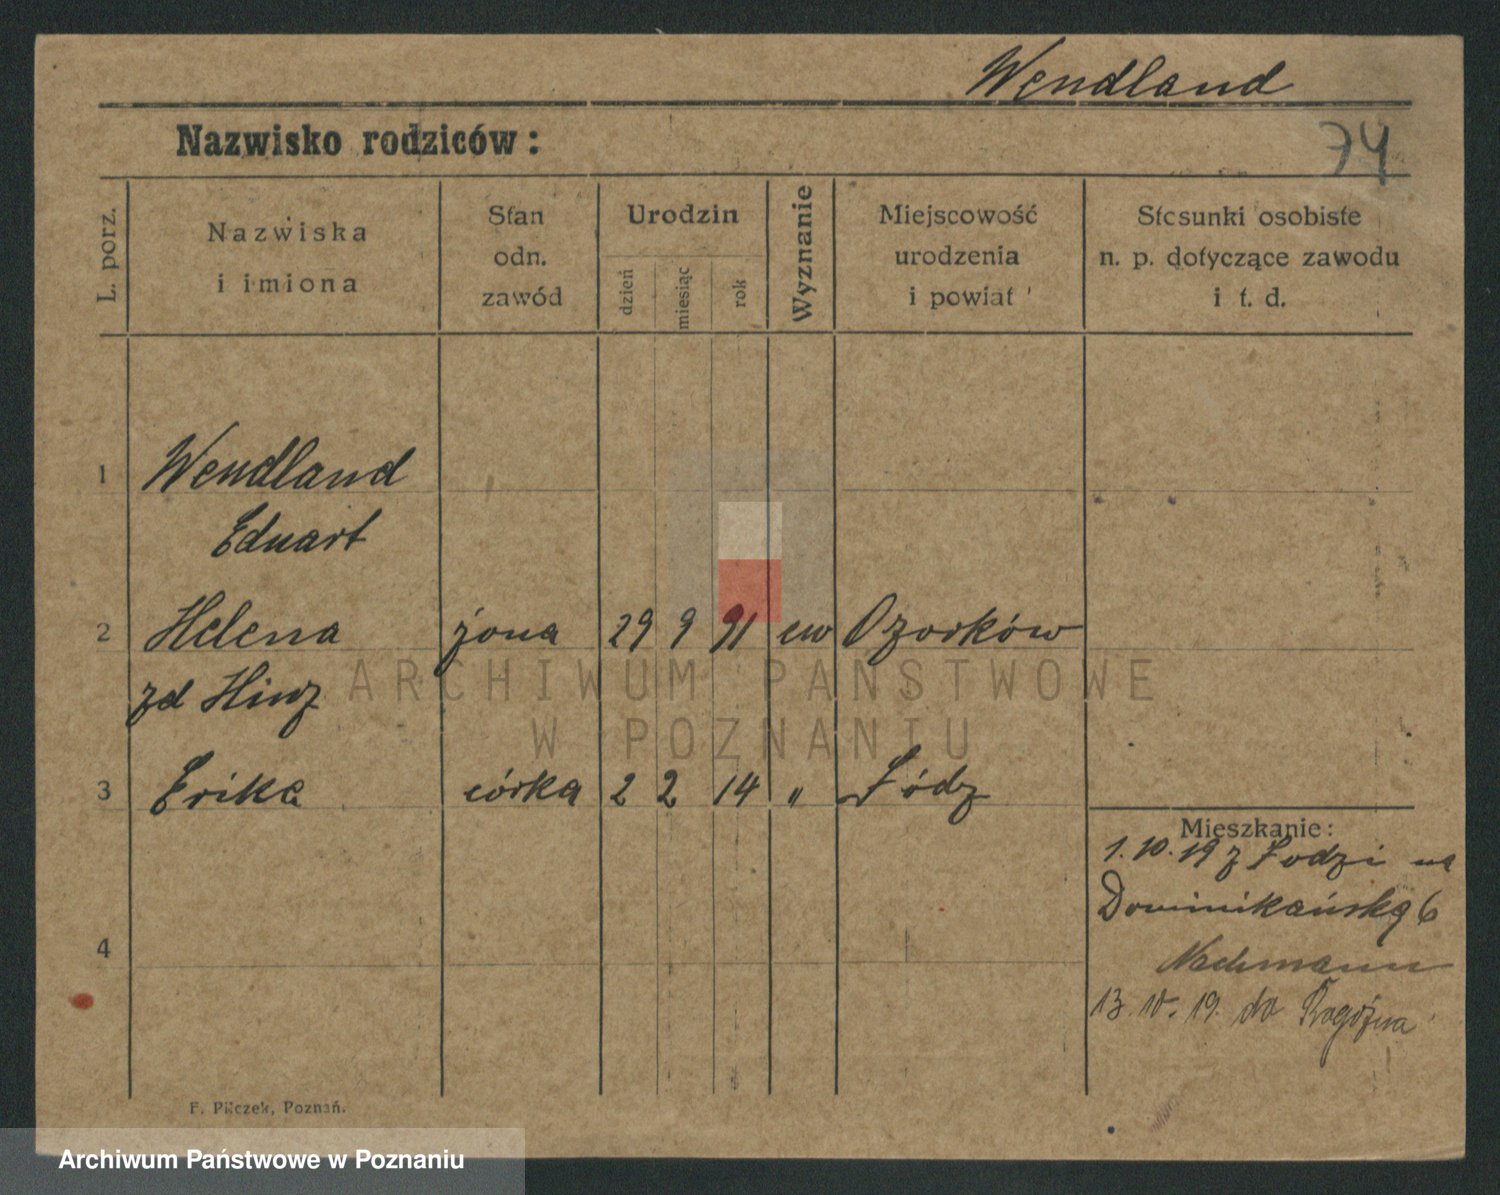 Wendland
Nazwisko rodziców:
74
L. porz.
Nazwiska
i imiona
Stan
odn.
zawód
Urodzin
dzień
miesiąc
rok
Wyznanie
Miejscowość
urodzenia
i powiat
Stosunki osobiste
n. p. dotyczące zawodu
i t. d.
1 Wendland
Eduart
2 Helena żona 29 9 91 ew Ozorków
zd Hinz
ARCHIWUM PAŃSTWOWE
W POZNANIU
3 Erika córka 2 2 14 " Łódz
Mieszkanie:
1.10.19 z Łodzi na
Dominikańską 6
Nachmann
4
13.10.19. do Rogoźna
F. Pilczek, Poznań.
Archiwum Państwowe w Poznaniu